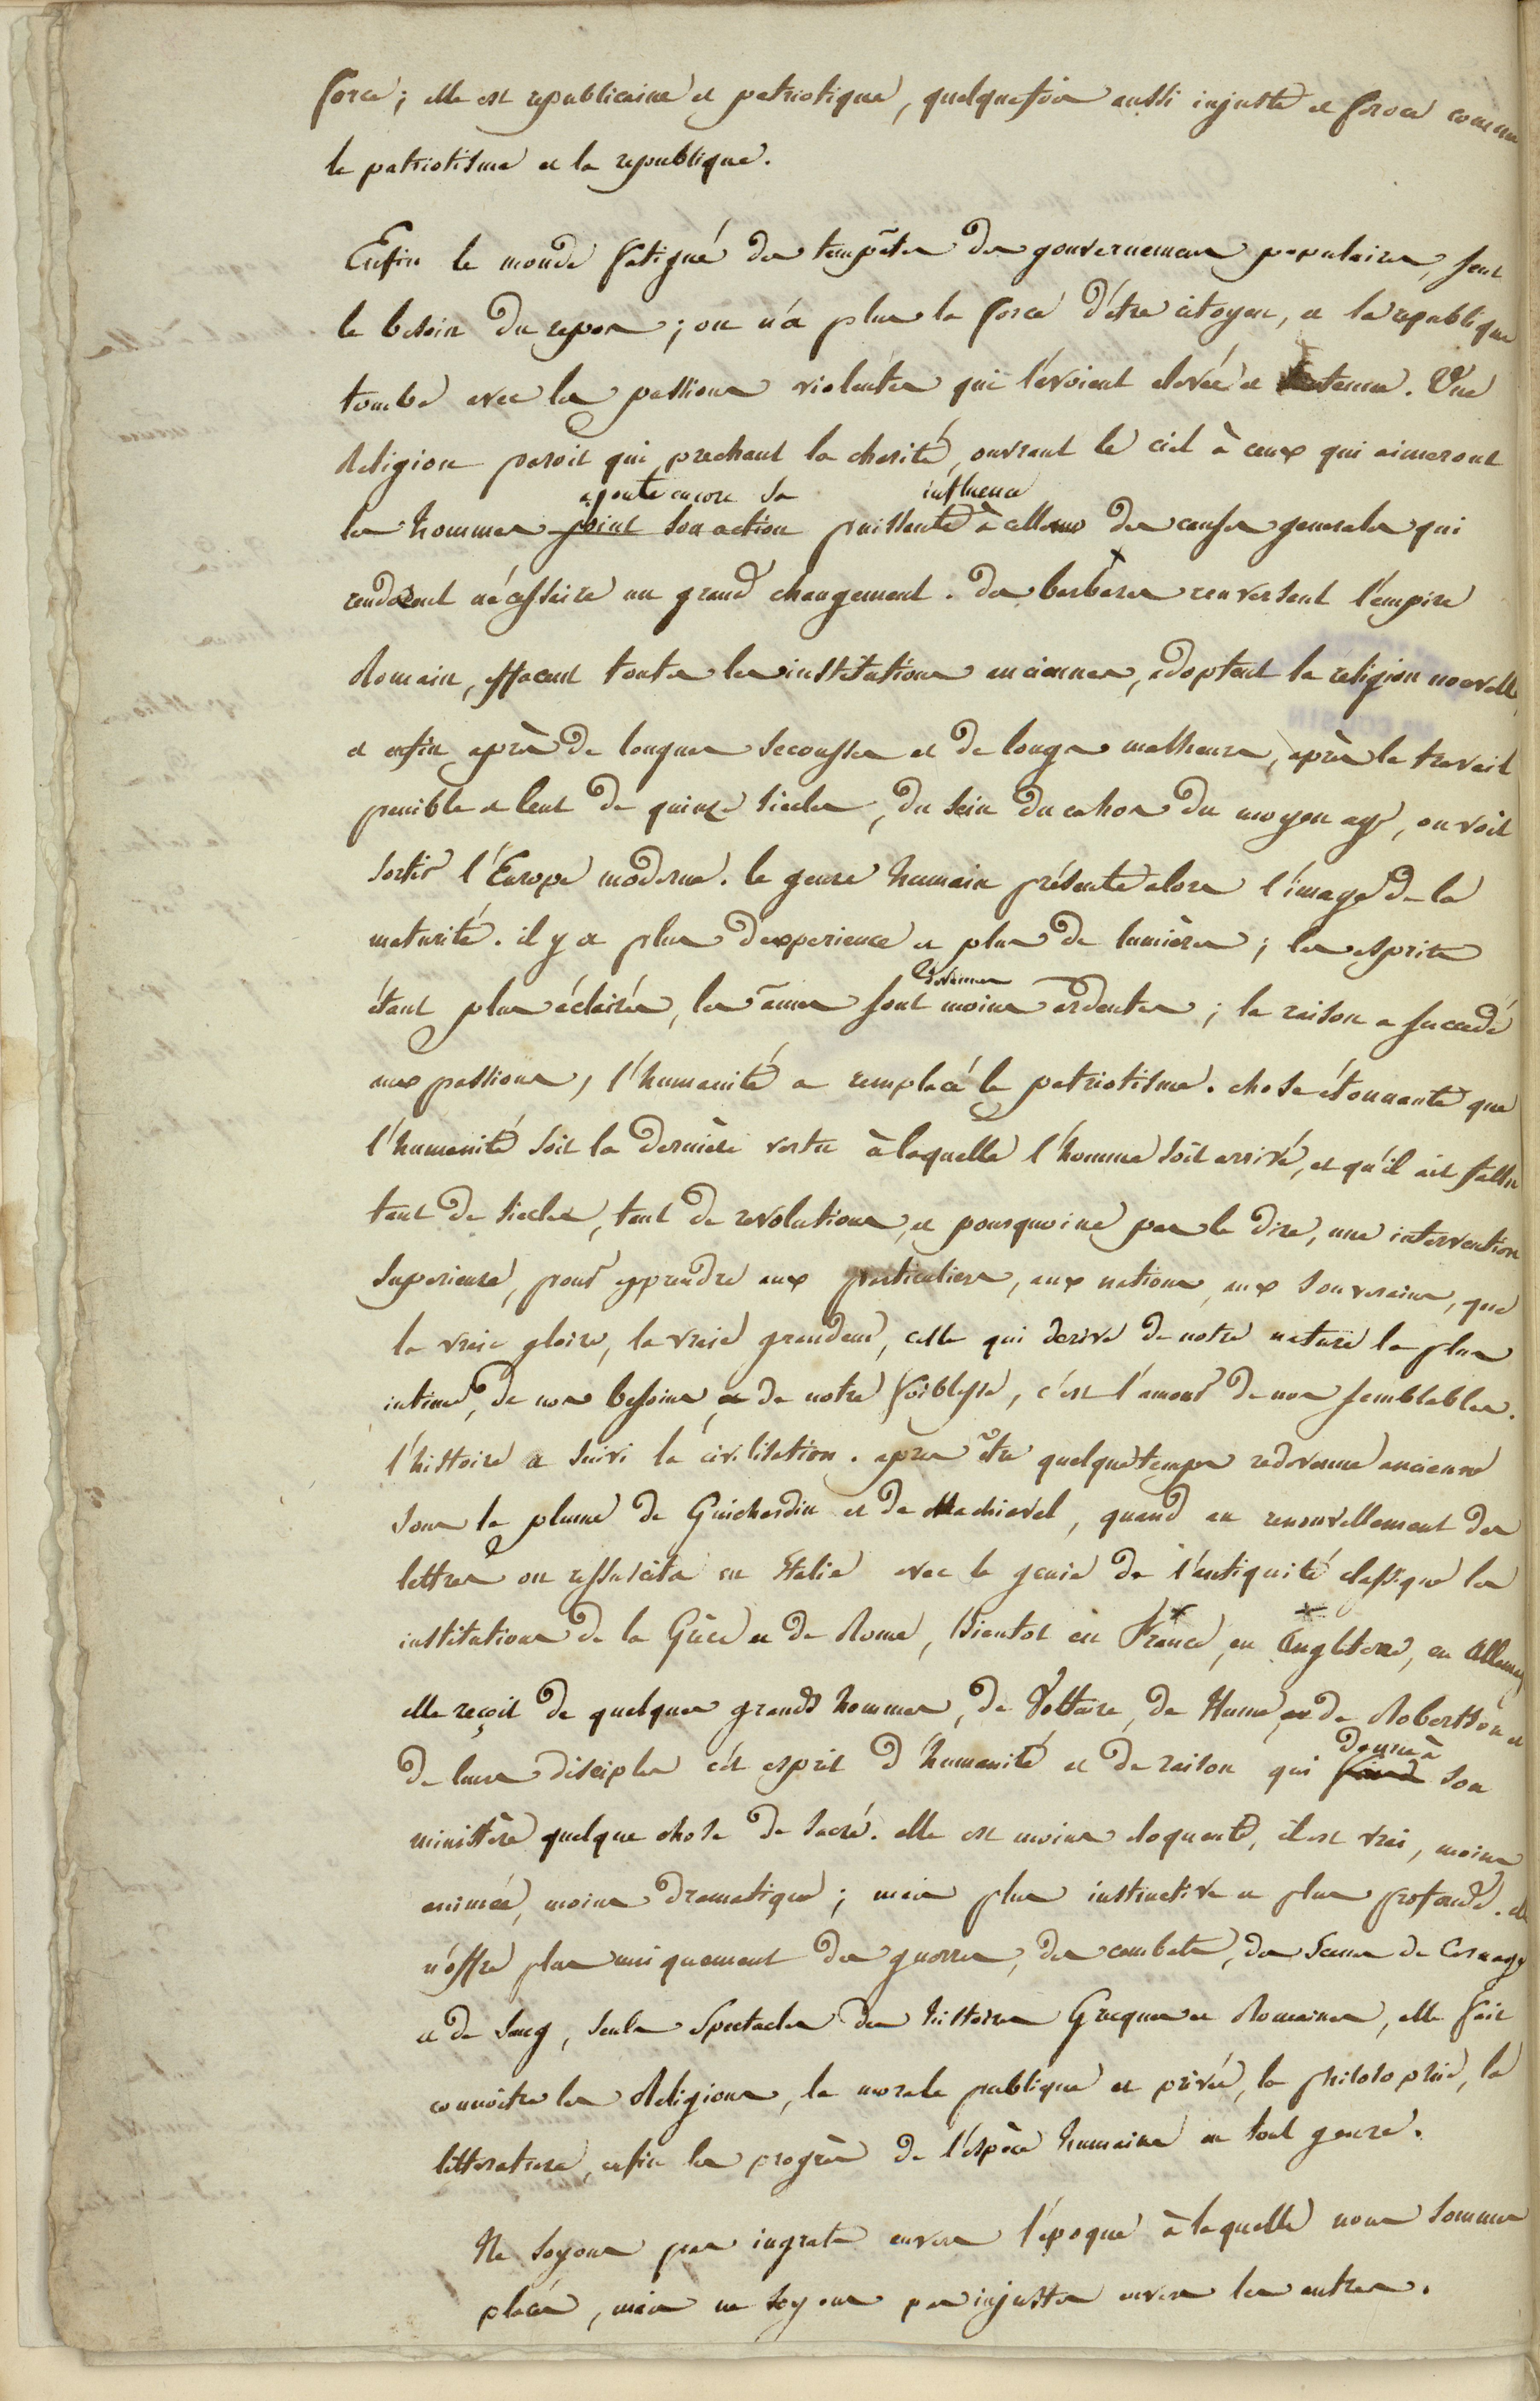 force; elle est republicaine et patriotique, quelquefois aussi injuste et feroce comme
le patriotisme et la republique.
Enfin le monde fatigué des tempêtes des gouvernemens populaires, sent
le besoin du repos; on n'a plus la force d'être citoyen, et la republique
tombe avec les passions violentes qui l'avoient elevée et soutenue. Une
Religion paroit qui prechant la charité, ouvrant le ciel à ceux qui aimeront
ajoute encore sa influence
les hommes joint son action puissante à celle des causes generales qui
rendoient nécessaire un grand changement. des barbares renversent l'empire
Romain, effacent toutes les institutions anciennes, adoptent la religion nouvelle,
et enfin après de longues secousses et de longs malheurs, après le travail
penible et lent de quinze siecles, du sein du cahos du moyen age, on voit
sortir l'Europe moderne. le genre humain présente alors l'image de la
maturité. il y a plus d'experience et plus de lumières; les esprits
devenues
étant plus éclairés, les âmes sont moins ardentes; la raison a succedé
aux passions, l'humanité a remplacé le patriotisme. chose étonnante que
l'humanité soit la dernière vertu à laquelle l'homme soit arrivé, et qu'il ait fallu
tant de siecles, tant de revolutions, et pourquoi ne pas le dire, une intervention
superieure, pour apprendre aux particuliers, aux nations, aux souverains, que
la vraie gloire, la vraie grandeur, celle qui derive de notre nature la plus
intime, de nos besoins et de notre foiblesse, c'est l'amour de nos semblables.
l'histoire a suivi la civilisation. apres être quelque temps redevenue ancienne
sous la plume de Guichardin et de Machiavel, quand au renouvellement des
lettres on ressuscita en Italie avec le genie de l'antiquité classique les
institutions de la Grèce et de Rome, bientot en France, en Angleterre, en Allemag
elle reçoit de quelques grands hommes, de Voltaire, de Hume, de Robertson et
donne à
de leurs disciples cet esprit d'humanité et de raison qui son
ministère quelque chose de sacré. elle est moins eloquente, il est vrai, moins
animée, moins dramatique; mais plus instinctive et plus profonde. elle
n'offre plus uniquement des guerres, des combats, des scenes de carnage
et de sang, seuls spectacles des histoires Grecques et Romaines, elle fait
connoitre les Religions, la morale publique et privée, la philosophie, la
litterature, enfin les progrès de l'espèce humaine en tout genre.
Ne soyons pas ingrats envers l'époque à laquelle nous sommes
placés, mais ne soyons pas injustes envers les autres.